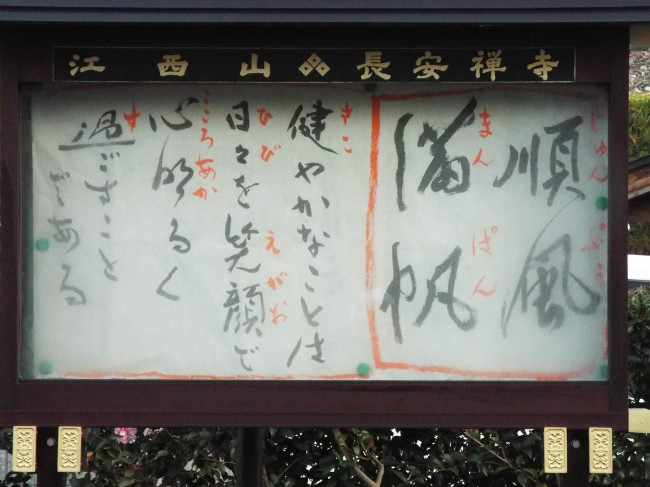 江西山 長安禅寺
順風
じゅんぷう
満帆
まんぱん
健やかなことは
すこ
日々を笑顔で
ひび えがお
心明るく
こころあか
過ごすこと
す
である